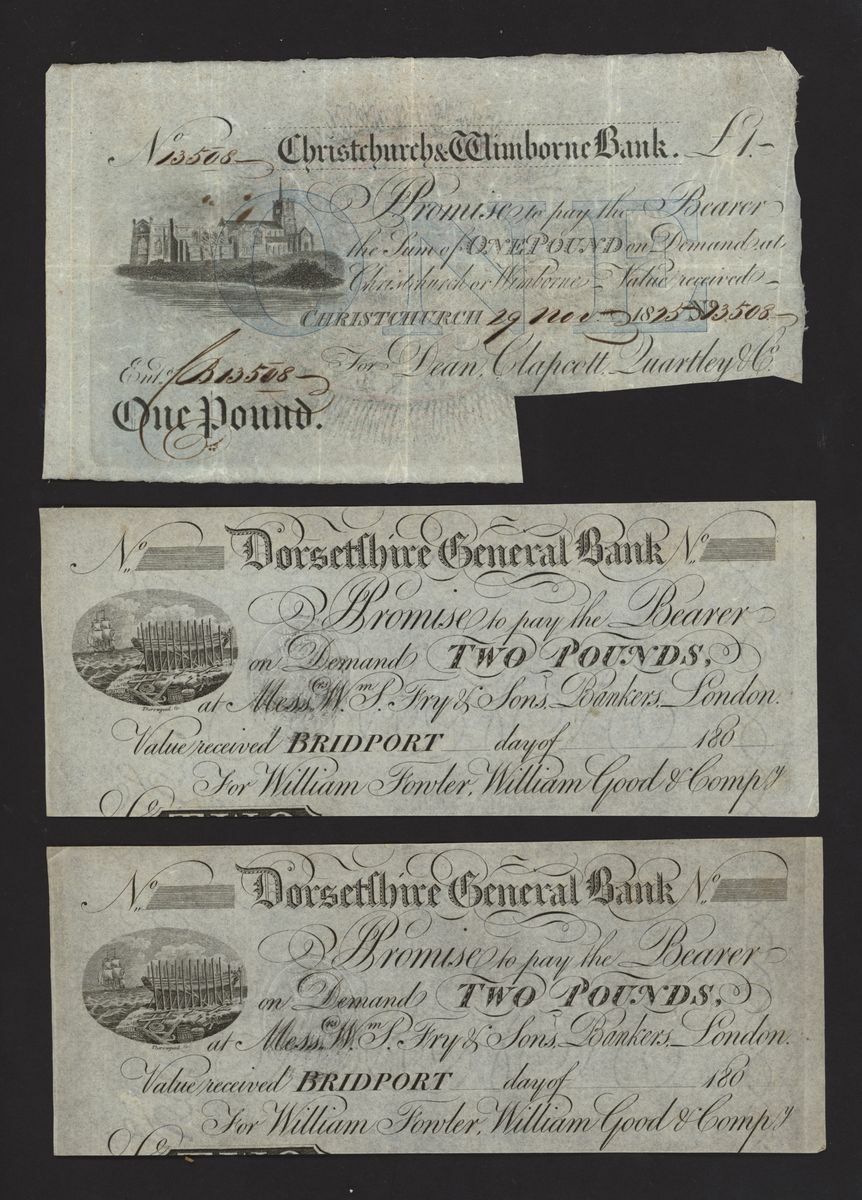 No 13508 Christchurch & Wimborne Bank. £1.-
ONE
I Promise to pay the Bearer
the Sum of ONE POUND on Demand at
Christchurch or Wimborne Value received
CHRISTCHURCH 29 Nov 1825 No 13508
Entd 13508 For Dean, Clapcott, Quartley & Co.
One Pound.
No Dorsetſhire General Bank No
I Promise to pay the Bearer
on Demand TWO POUNDS,
at Messrs Wm S. Fry & Sons, Bankers, London.
Value received BRIDPORT day of 180
For William Fowler, William Good & Compy
TWO
No Dorsetſhire General Bank No
I Promise to pay the Bearer
on Demand TWO POUNDS,
at Messrs Wm S. Fry & Sons, Bankers, London.
Value received BRIDPORT day of 180
For William Fowler, William Good & Compy